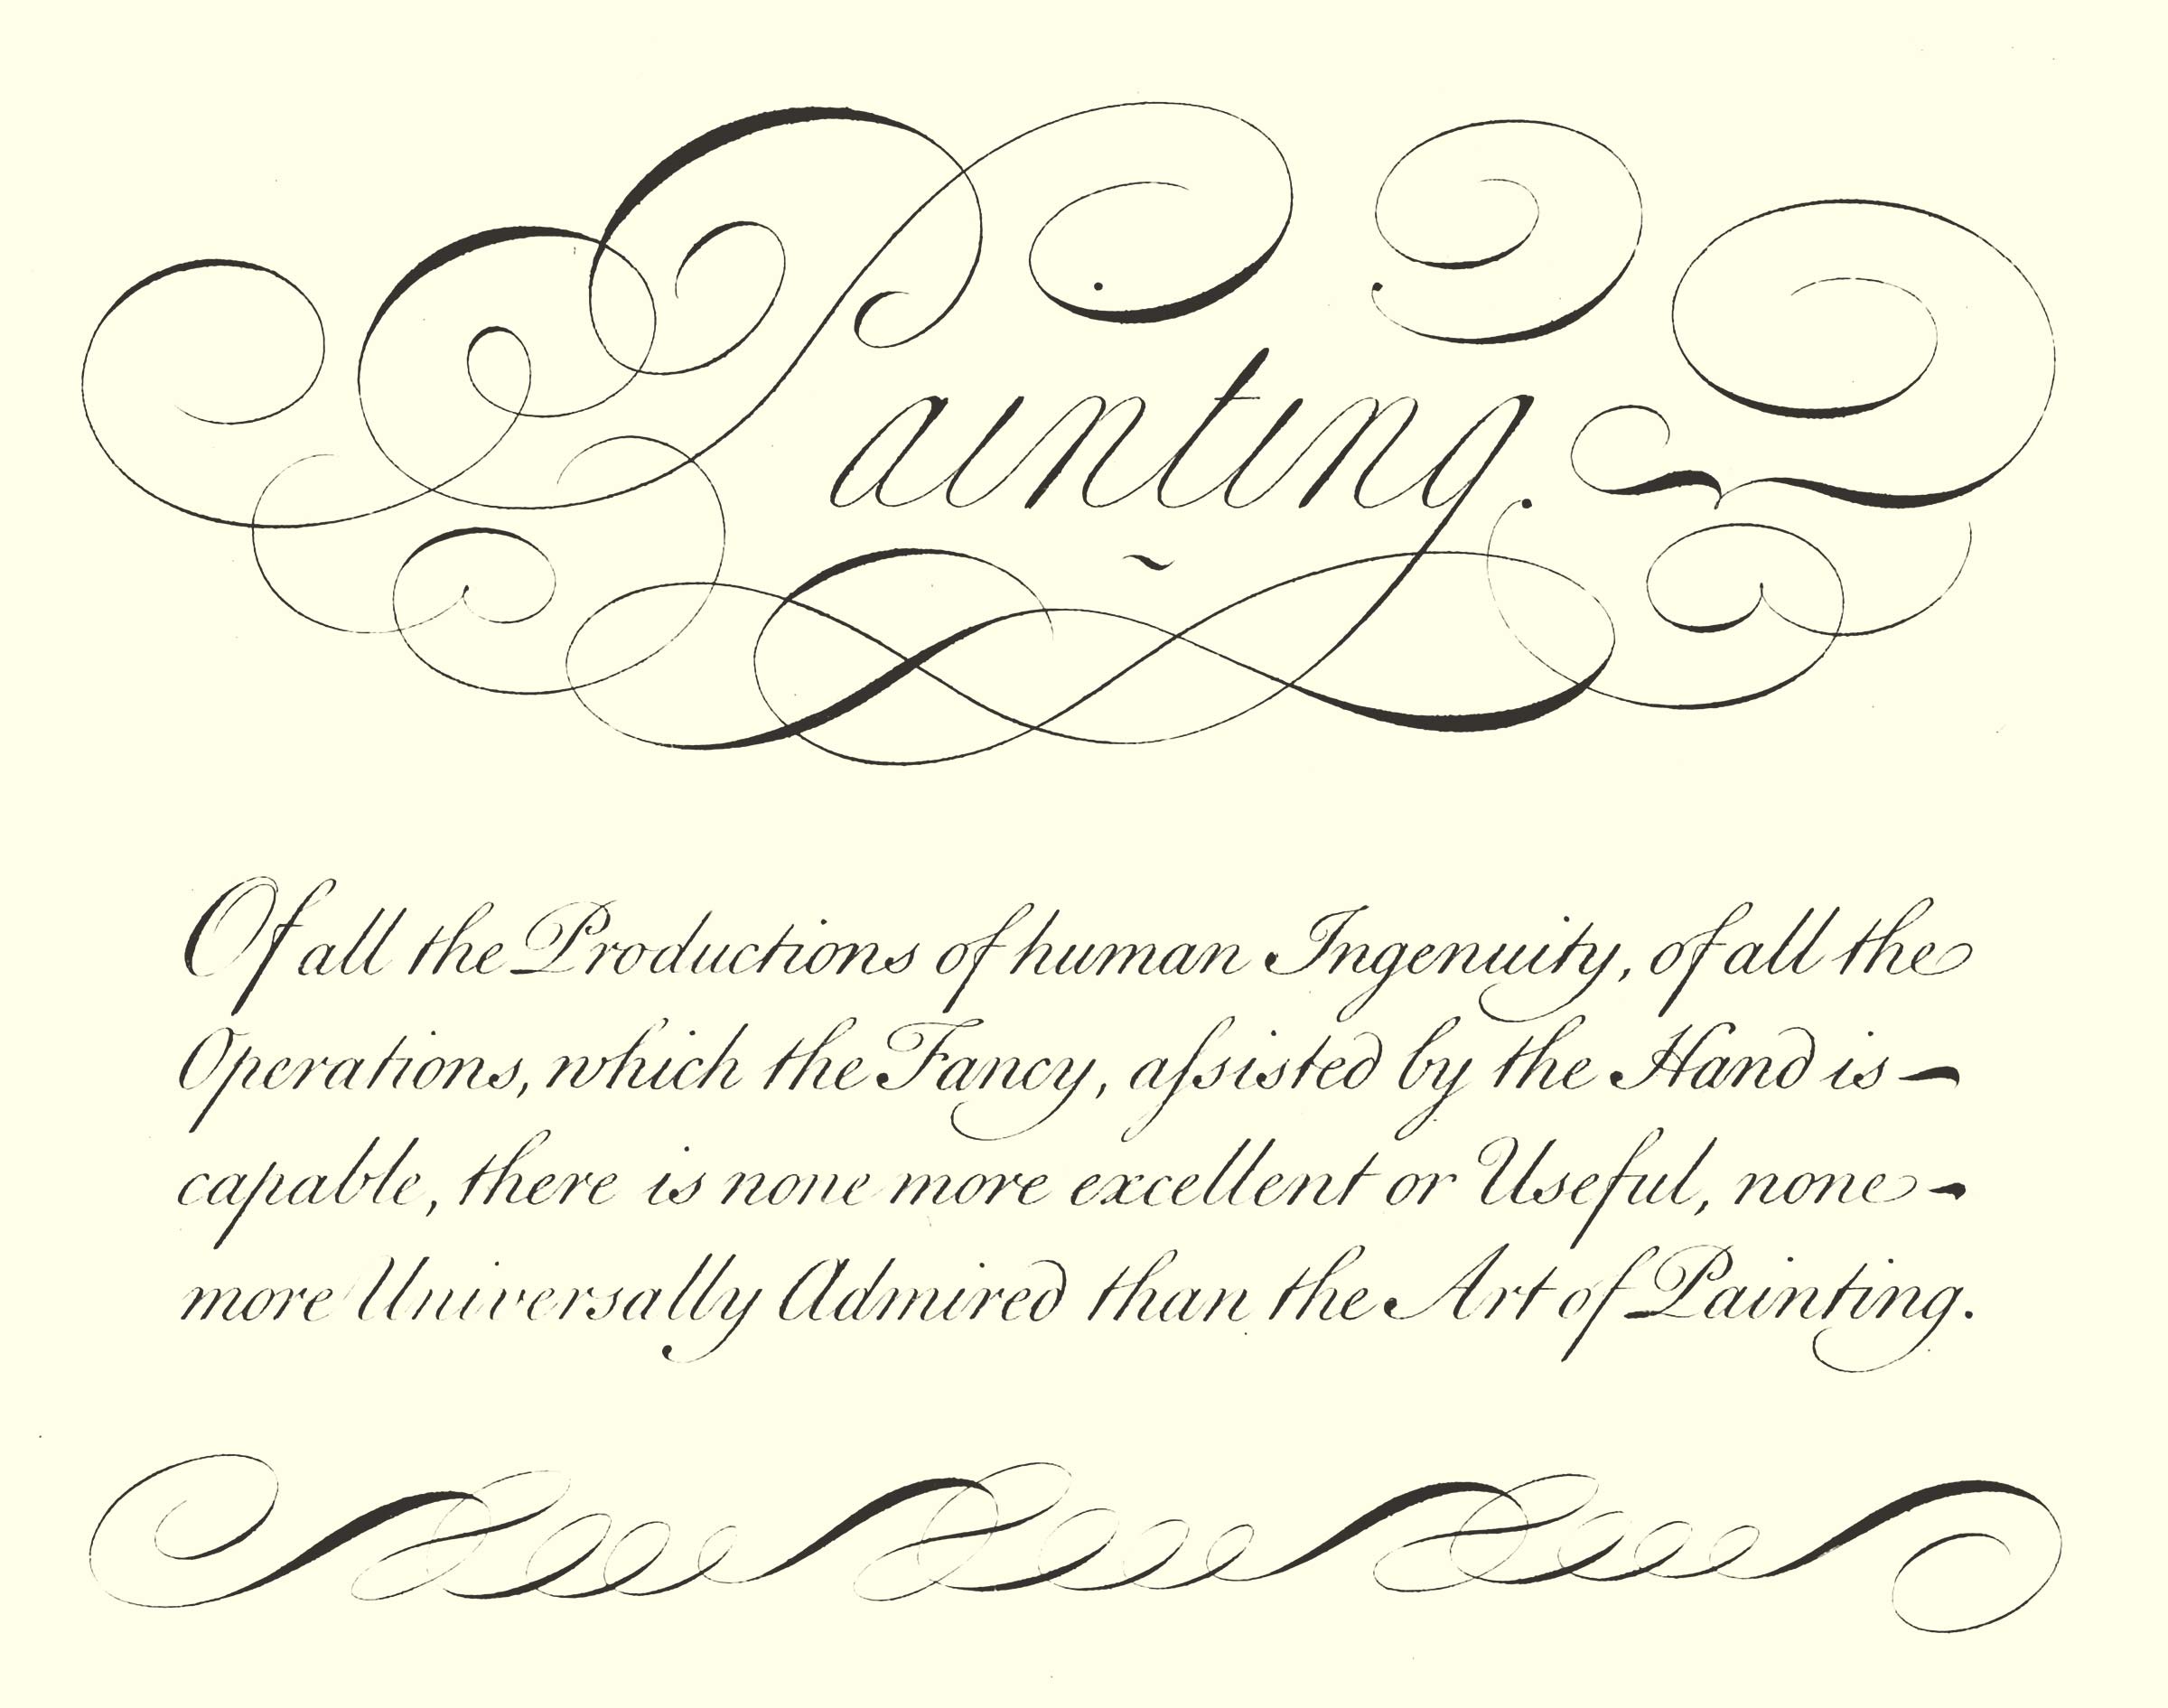 Painting.
Of all the Productions of human Ingenuity, of all the
Operations, which the Fancy, aſsisted by the Hand is –
capable, there is none more excellent or Useful, none –
more Universally Admired than the Art of Painting.